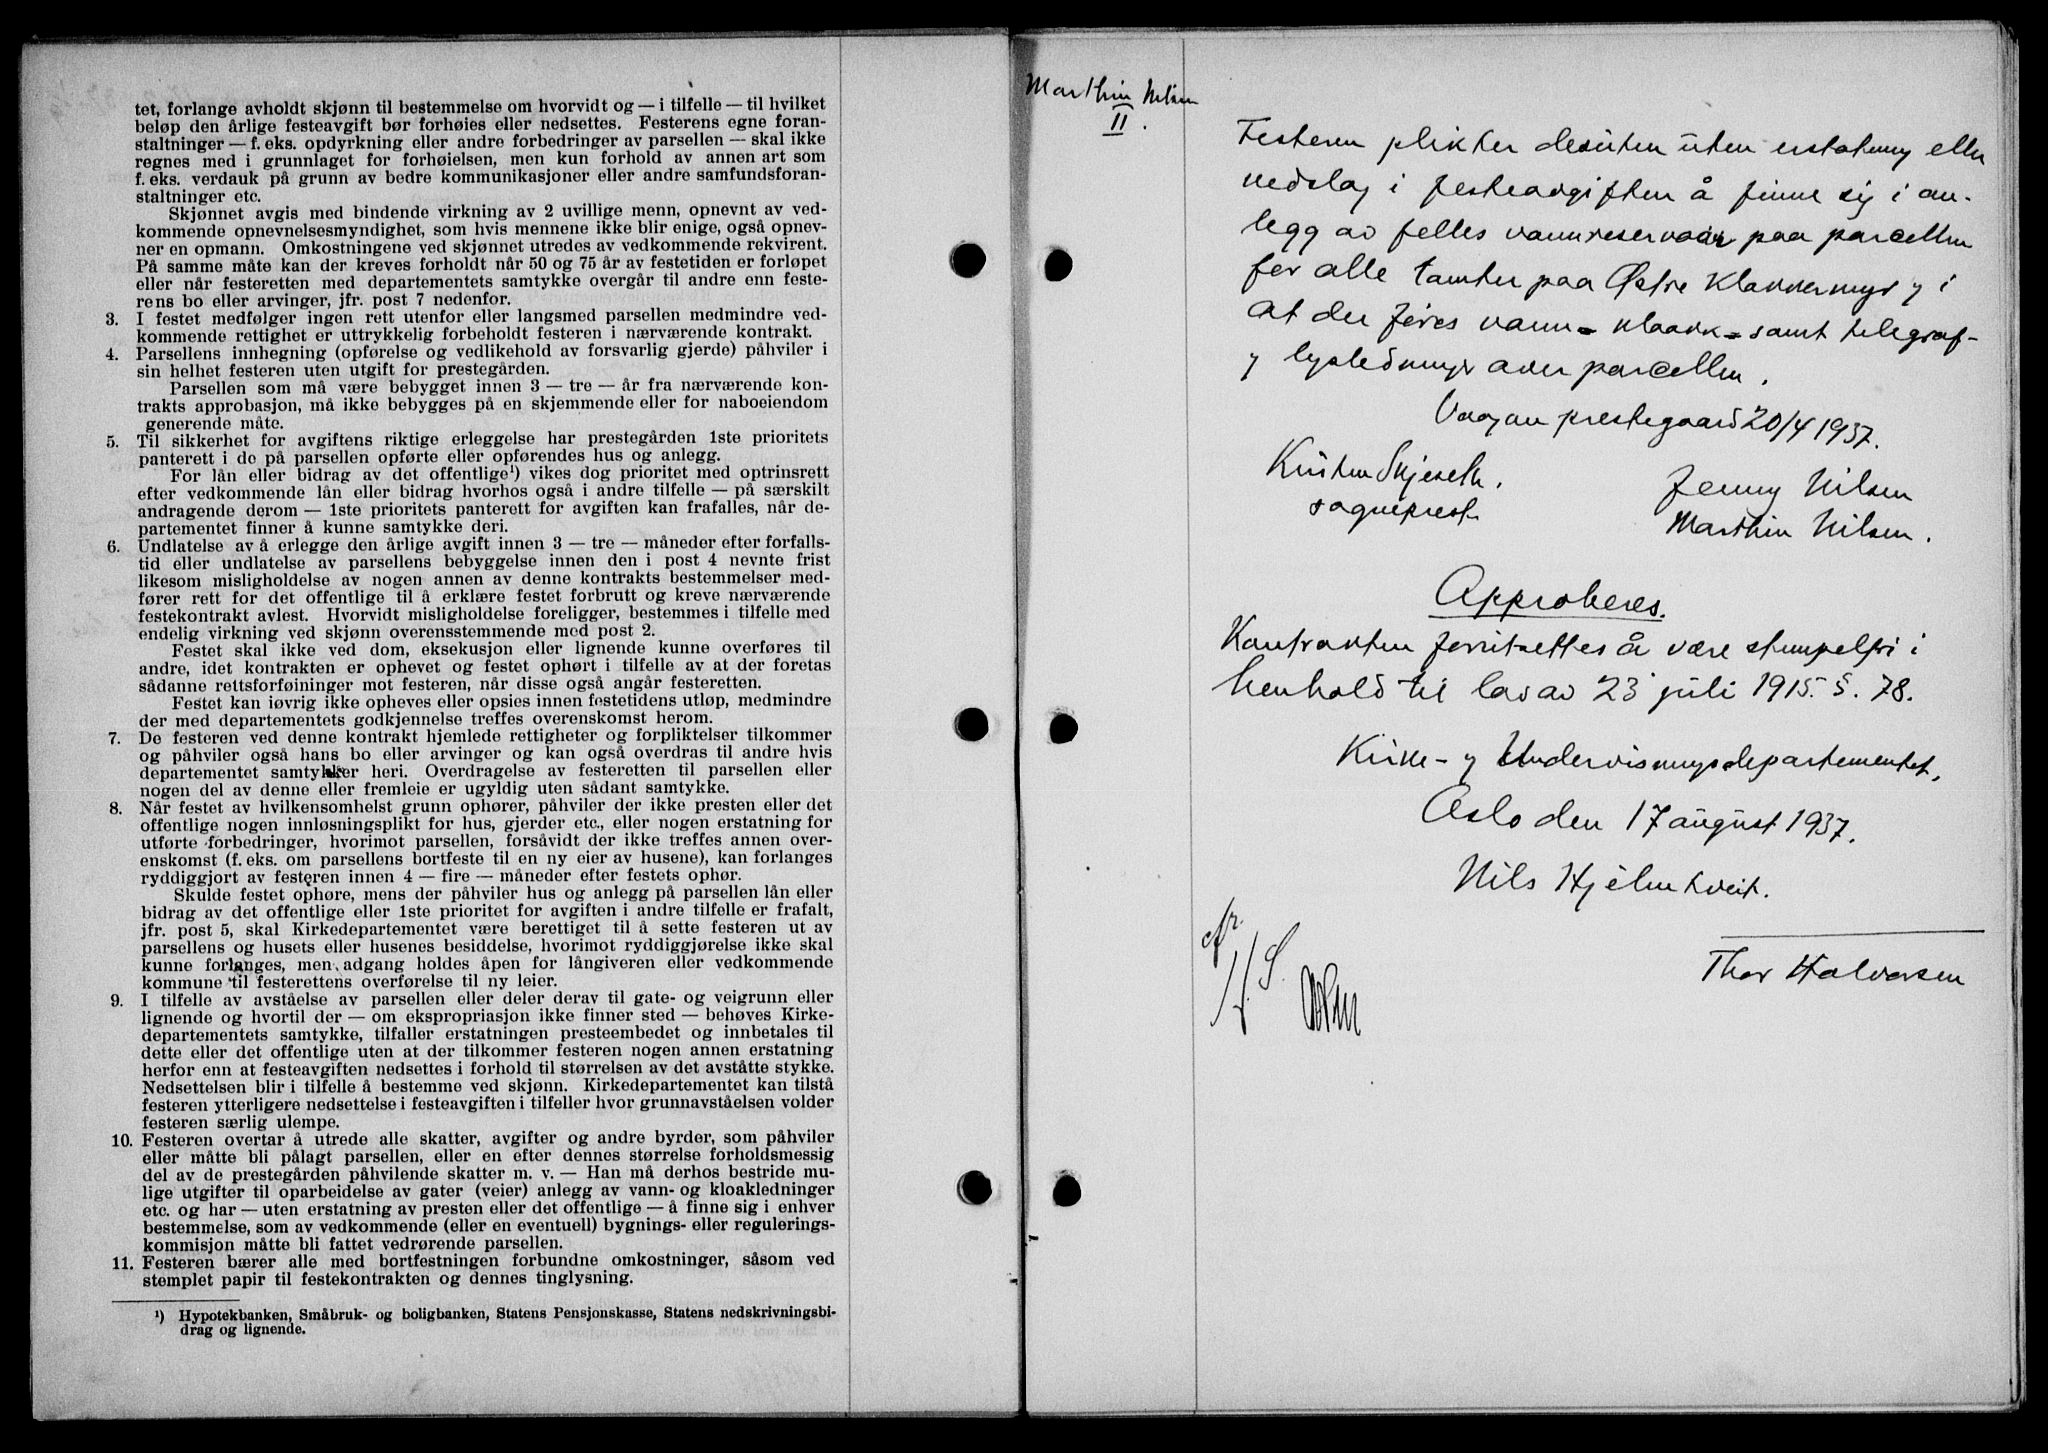 tet, forlange avholdt skjønn til bestemmelse om hvorvidt og — i tilfelle — til hvilket
beløp den årlige festeavgift bør forhøies eller nedsettes. Festerens egne foran-
staltninger — f. eks. opdyrkning eller andre forbedringer av parsellen — skal ikke
regnes med i grunnlaget for forhøielsen, men kun forhold av annen art som
f. eks. verdauk på grunn av bedre kommunikasjoner eller andre samfundsforan-
staltninger etc.
Skjønnet avgis med bindende virkning av 2 uvillige menn, opnevnt av ved-
kommende opnevnelsesmyndighet, som hvis mennene ikke blir enige, også opnev-
ner en opmann. Omkostningene ved skjønnet utredes av vedkommende rekvirent.
På samme måte kan der kreves forholdt når 50 og 75 år av festetiden er forløpet
eller når festeretten med departementets samtykke overgår til andre enn feste-
rens bo eller arvinger, jfr. post 7 nedenfor.
3. I festet medfølger ingen rett utenfor eller langsmed parsellen medmindre ved-
kommende rettighet er uttrykkelig forbeholdt festeren i nærværende kontrakt.
4. Parsellens innhegning (opførelse og vedlikehold av forsvarlig gjerde) påhviler i
sin helhet festeren uten utgift for prestegården.
Parsellen som må være bebygget innen 3 — tre — år fra nærværende kon-
trakts approbasjon, må ikke bebygges på en skjemmende eller for naboeiendom
generende måte.
5. Til sikkerhet for avgiftens riktige erleggelse har prestegården 1ste prioritets
panterett i de på parsellen opførte eller opførendes hus og anlegg.
For lån eller bidrag av det offentlige¹) vikes dog prioritet med optrinsrett
efter vedkommende lån eller bidrag hvorhos også i andre tilfelle — på særskilt
andragende derom — 1ste prioritets panterett for avgiften kan frafalles, når de-
partementet finner å kunne samtykke deri.
6. Undlatelse av å erlegge den årlige avgift innen 3 — tre — måneder efter forfalls-
tid eller undlatelse av parsellens bebyggelse innen den i post 4 nevnte frist
likesom misligholdelse av nogen annen av denne kontrakts bestemmelser med-
fører rett for det offentlige til å erklære festet forbrutt og kreve nærværende
festekontrakt avlest. Hvorvidt misligholdelse foreligger, bestemmes i tilfelle med
endelig virkning ved skjønn overensstemmende med post 2.
Festet skal ikke ved dom, eksekusjon eller lignende kunne overføres til
andre, idet kontrakten er ophevet og festet ophørt i tilfelle av at der foretas
sådanne rettsforføininger mot festeren, når disse også angår festeretten.
Festet kan iøvrig ikke opheves eller opsies innen festetidens utløp, medmindre
der med departementets godkjennelse treffes overenskomst herom.
7. De festeren ved denne kontrakt hjemlede rettigheter og forpliktelser tilkommer
og påhviler også hans bo eller arvinger og kan også overdras til andre hvis
departementet samtykker heri. Overdragelse av festeretten til parsellen eller
nogen del av denne eller fremleie er ugyldig uten sådant samtykke.
8. Når festet av hvilkensomhelst grunn ophører, påhviler der ikke presten eller det
offentlige nogen innløsningsplikt for hus, gjerder etc., eller nogen erstatning for
utførte forbedringer, hvorimot parsellen, forsåvidt der ikke treffes annen over-
enskomst (f. eks. om parsellens bortfeste til en ny eier av husene), kan forlanges
ryddiggjort av festeren innen 4 — fire — måneder efter festets ophør.
Skulde festet ophøre, mens der påhviler hus og anlegg på parsellen lån eller
bidrag av det offentlige eller 1ste prioritet for avgiften i andre tilfelle er frafalt,
jfr. post 5, skal Kirkedepartementet være berettiget til å sette festeren ut av
parsellens og husets eller husenes besiddelse, hvorimot ryddiggjørelse ikke skal
kunne forlanges, men adgang holdes åpen for långiveren eller vedkommende
kommune til festerettens overførelse til ny leier.
9. I tilfelle av avståelse av parsellen eller deler derav til gate- og veigrunn eller
lignende og hvortil der — om ekspropriasjon ikke finner sted — behøves Kirke-
departementets samtykke, tilfaller erstatningen presteembedet og innbetales til
dette eller det offentlige uten at der tilkommer festeren nogen annen erstatning
herfor enn at festeavgiften nedsettes i forhold til størrelsen av det avståtte stykke.
Nedsettelsen blir i tilfelle å bestemme ved skjønn. Kirkedepartementet kan tilstå
festeren ytterligere nedsettelse i festeavgiften i tilfeller hvor grunnavståelsen volder
festeren særlig ulempe.
10. Festeren overtar å utrede alle skatter, avgifter og andre byrder, som påhviler
eller måtte bli pålagt parsellen, eller en efter dennes størrelse forholdsmessig
del av de prestegården påhvilende skatter m. v. — Han må derhos bestride mu-
lige utgifter til oparbeidelse av gater (veier) anlegg av vann- og kloakledninger
etc. og har — uten erstatning av presten eller det offentlige — å finne sig i enhver
bestemmelse, som av vedkommende (eller en eventuell) bygnings- eller regulerings-
kommisjon måtte bli fattet vedrørende parsellen.
11. Festeren bærer alle med bortfestningen forbundne omkostninger, såsom ved
stemplet papir til festekontrakten og dennes tinglysning.
¹) Hypotekbanken, Småbruk- og boligbanken, Statens Pensjonskasse, Statens nedskrivningsbi-
drag og lignende.
Marthin Nilsen
II.
Festeren plikter desuten uten erstatning eller
nedslag i festeavgiften å finne sig i an-
legg av felles vannreservoar paa parcellen
for alle tomter paa Østre Klavermyr og i
at der føres vann- kloakk- samt telegraf-
og lysledninger over parcellen.
Vaagan prestegaard 20/4 1937.
Kristen Skjeseth.
sogneprest
Jenny Nilsen
Marthin Nilsen.
Approberes.
Kontrakten forutsettes å være stempelfri i
henhold til lov av 23 juli 1915. §. 78.
Kirke- og Undervisningsdepartementet,
Oslo den 17 august 1937.
Nils Hjelmtveit.
Thor Halvorsen